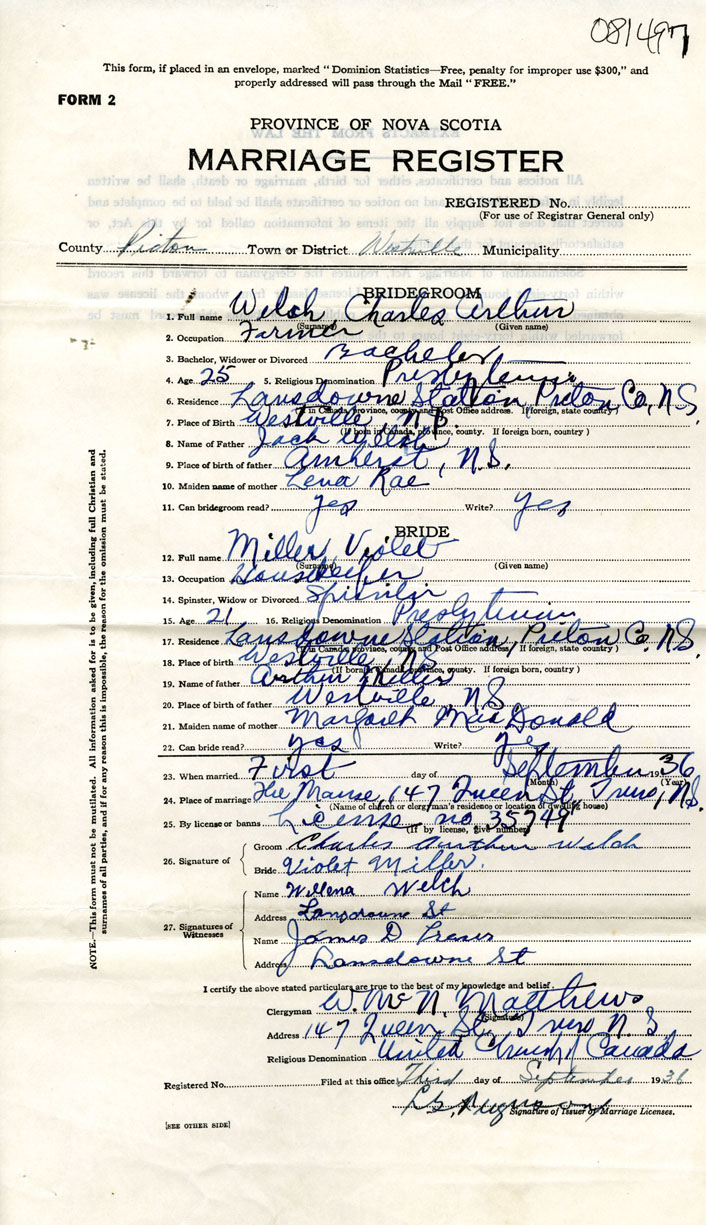 081497
This form, if placed in an envelope, marked "Dominion Statistics—Free, penalty for improper use $300," and
properly addressed will pass through the Mail "FREE."
FORM 2
PROVINCE OF NOVA SCOTIA
MARRIAGE REGISTER
REGISTERED No.
(For use of Registrar General only)
County Pictou Town or District Westville Municipality
BRIDEGROOM
1. Full name Welch, Charles Arthur
(Surname) (Given name)
2. Occupation Farmer
3. Bachelor, Widower or Divorced Bachelor
4. Age 25 5. Religious Denomination Presbyterian
6. Residence Lansdowne Station, Pictou Co, N.S.
(If in Canada, province, county and Post Office address. If foreign, state country)
7. Place of Birth Westville, N.S.
(If born in Canada, province, county. If foreign born, country )
8. Name of Father Jack Welch
9. Place of birth of father Amherst, N.S.
10. Maiden name of mother Lena Rae
11. Can bridegroom read? yes Write? yes
BRIDE
12. Full name Miller, Violet
(Surname) (Given name)
13. Occupation Housekeeper
14. Spinster, Widow or Divorced Spinster
15. Age 21 16. Religious Denomination Presbyterian
17. Residence Lansdowne Station, Pictou Co. N.S.
(If in Canada, province, county and Post Office address. If foreign, state country)
18. Place of birth Westville, N.S.
(If born in Canada, province, county. If foreign born, country )
19. Name of father Arthur Miller
20. Place of birth of father Westville N.S
21. Maiden name of mother Margaret MacDonald
22. Can bride read? yes Write? yes
23. When married First day of September 1936
(Month) (Year)
24. Place of marriage The Manse, 147 Queen St, Truro, N.S.
(Name of church or clergyman's residence or location of dwelling house)
25. By license or banns License no 35749
(If by license, give number)
26. Signature of
Groom Charles Arthur Welch
Bride Violet Miller.
27. Signatures of Witnesses
Name Willena Welch
Address Lansdowne St
Name James D Fraser
Address Lansdowne St
I certify the above stated particulars are true to the best of my knowledge and belief.
Clergyman W. McN. Matthews
(Signature)
Address 147 Queen St, Truro N S
Religious Denomination United Church Canada
Registered No. Filed at this office Third day of September 1936
Signature of Issuer of Marriage Licenses.
[SEE OTHER SIDE]
NOTE.—This form must not be mutilated. All information asked for is to be given, including full Christian and
surnames of all parties, and if for any reason this is impossible, the reason for the omission must be stated.